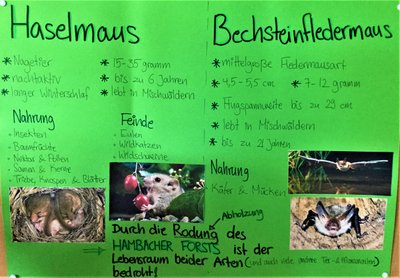 Haselmaus
* Nagetier
* nachtaktiv
* langer Winterschlaf
* 15-35 gramm
* bis zu 6 Jahren
* lebt in Mischwäldern
Nahrung
• Insekten
• Baumfrüchte
• Nektar & Pollen
• Samen & Kerne
• Triebe, Knospen & Blätter
Feinde
• Eulen
• Wildkatzen
• Wildschweine
Bechsteinfledermaus
* mittelgroße Fledermausart
* 4,5-5,5 cm * 7-12 gramm
* Flugspannweite bis zu 29 cm
* lebt in Mischwäldern
* bis zu 21 Jahren
Nahrung
Käfer & Mücken
Abholzung
Durch die Rodung des
HAMBACHER FORSTS ist der
Lebensraum beider Arten (und auch viele andere Tier- & Pflanzenarten)
bedroht!